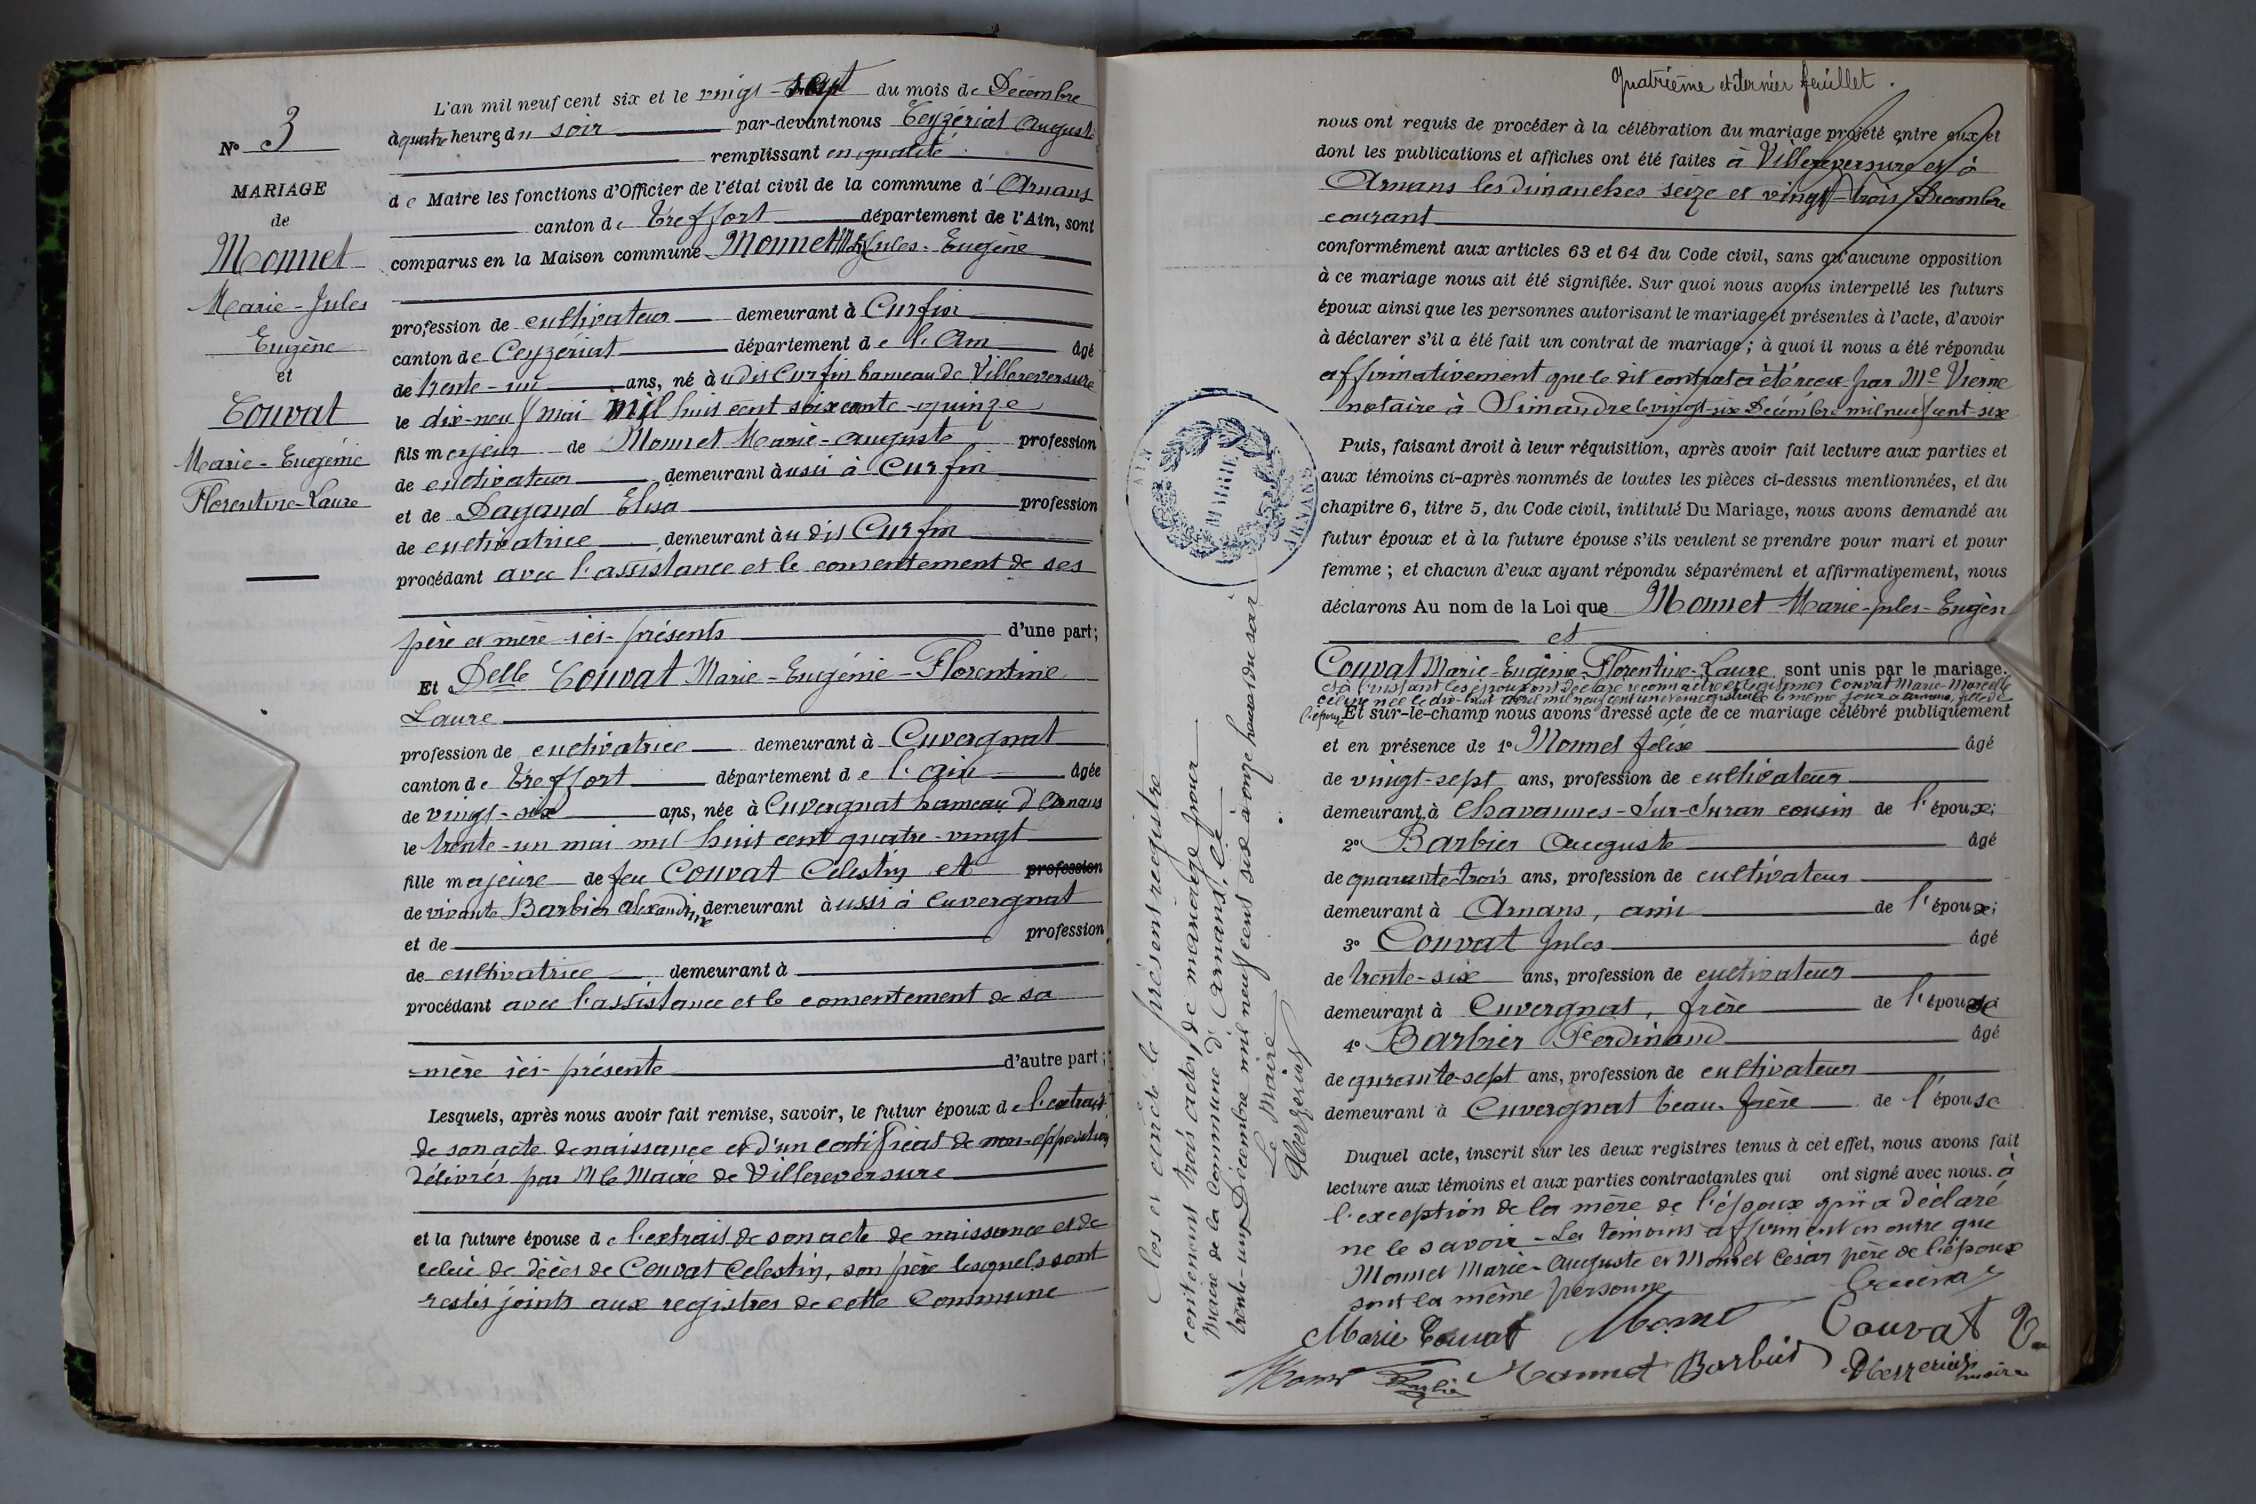 N° 3
MARIAGE
de
Monnet
Marie - Jules
Eugène
et
Couvat
Marie - Eugénie
Florentine - Laure
L'an mil neuf cent six et le vingt - sept du mois de Décembre
à quatre heures du soir par-devant nous Teyzériat Auguste
remplissant en qualité
de Maire les fonctions d'Officier de l'état civil de la commune d' Arnans
canton de Treffort département de l'Ain, sont
comparus en la Maison commune Monnet Jules - Eugène
profession de cultivateur demeurant à Curfin
canton de Ceyzériat département de l'Ain âgé
de trente - un ans, né à udit Curfin hameau de Villereversure
le dix-neuf mai mil huit cent soixante - quinze
fils majeur de Monnet Marie - Auguste profession
de cultivateur demeurant àussi à Curfin
et de Dagaud Elisa profession
de cultivatrice demeurant àu dit Curfin
procédant avec l'assistance et le consentement de ses
père et mère ici - présents d'une part;
Et Delle Couvat Marie - Eugénie - Florentine
Laure
profession de cultivatrice demeurant à Cuvergnat
canton de Treffort département de l'Ain âgée
de vingt - six ans, née à Cuvergnat hameau d'Arnans
le trente - un mai mil huit cent quatre - vingt
fille majeure de feu Couvat Célestin et profession
de vivante Barbier Alexandrine demeurant àussi à Cuvergnat
et de profession
de cultivatrice demeurant à
procédant avec l'assistance et le consentement de sa
mère ici - présente d'autre part;
Lesquels, après nous avoir fait remise, savoir, le futur époux de l'extrait
de son acte de naissance et d'un certificat de non-opposition
délivrés par M le Maire de Villereversure
et la future épouse de l'extrait de son acte de naissance et de
celui de décès de Couvat Celestin, son père lesquels sont
restés joints aux registres de cette Commune
Quatrième et dernier feuillet.
nous ont requis de procéder à la célébration du mariage projeté entre eux et
dont les publications et affiches ont été faites à Villereversure et à
Arnans les dimanches seize et vingt - trois Décembre
courant
conformément aux articles 63 et 64 du Code civil, sans qu'aucune opposition
à ce mariage nous ait été signifiée. Sur quoi nous avons interpellé les futurs
époux ainsi que les personnes autorisant le mariage et présentes à l'acte, d'avoir
à déclarer s'il a été fait un contrat de mariage; à quoi il nous a été répondu
affirmativement que le dit contrat a été reçu par Me Vierne
notaire à Simandre le vingt-six Décembre mil neuf cent - six
Puis, faisant droit à leur réquisition, après avoir fait lecture aux parties et
aux témoins ci-après nommés de toutes les pièces ci-dessus mentionnées, et du
chapitre 6, titre 5, du Code civil, intitulé Du Mariage, nous avons demandé au
futur époux et à la future épouse s'ils veulent se prendre pour mari et pour
femme; et chacun d'eux ayant répondu séparément et affirmativement, nous
déclarons Au nom de la Loi que Monnet Marie - Jules - Eugène
et
Couvat Marie - Eugénie - Florentine - Laure sont unis par le mariage.
et à l'instant les époux ont déclaré reconnaître et légitimer Couvat Marie - Marcelle
Céline née le dix-huit avril mil neuf cent un et enregistrée le même jour à Arnans, fille de
l'épouse
Et sur-le-champ nous avons dressé acte de ce mariage célébré publiquement
et en présence de 1° Monnet Félix âgé
de vingt-sept ans, profession de cultivateur
demeurant à Chavannes - Sur - Suran cousin de l'époux;
2° Barbier Auguste âgé
de quarante-trois ans, profession de cultivateur
demeurant à Arnans, ami de l'époux;
3° Couvat Jules âgé
de trente - six ans, profession de cultivateur
demeurant à Cuvergnat, frère de l'épouse
4° Barbier Ferdinand âgé
de qurante-sept ans, profession de cultivateur
demeurant à Cuvergnat beau-frère de l'épouse
Duquel acte, inscrit sur les deux registres tenus à cet effet, nous avons fait
lecture aux témoins et aux parties contractantes qui ont signé avec nous. à
l'exception de la mère de l'époux qui a déclaré
ne le savoir - Les témoins affirment en outre que
Monnet Marie - Auguste et Monnet César père de l'époux
sont la même personne
Marie Couvat Monnet Couvat
Monnet Monnet Barbier
maire
Clos et arrêté le présent registre
contenant trois actes, de mariage pour
Maire de la Commune d'Arnans, le
trente-un Décembre mil neuf cent six à onze heures du soir
Le Maire
MAIRIE
AIN
ARNANS